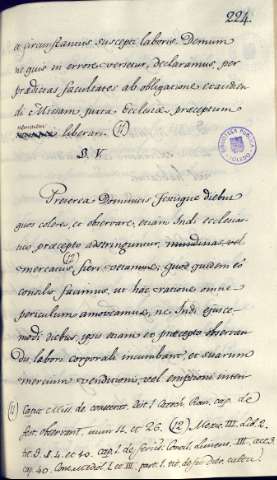 224.
a circunstantiis suscepti laboris. Demum
ne quis in errore versetur, declaramus, per
prædictas facultates ab obligatione
di Missam juxta Ecclesiæ præceptum
liberari. (11)
§. V
Preterea Dominicis, festisque diebus
quos colere, et observare, etiam Indi ecclesias-
tico præcepto adstringuntur, nundinas, vel
mercatus (12) fieri vetamus; quod quidem eo
consilio facimus, ut hac ratione omne
periculum amoveamus, ne Indi ejusce-
modi diebus, ipsis etiam ex præcepto observan-
dis, labori corporali incumbant, et suarum
mercium venditionis, vel emptionis inten-
(11) Capit. Missas de consecrat. dist. 1. Catech. Rom. cap. de
fest. observant. num. 4 et 26. (12) Mexic. III. lib. 2.
tit. 3. §. 4. et 10. cap. 1. de feriis. Concil. Limens. III. act. 3.
cap. 40. Conc. Mediol. I. et III. part. 1. tit. de fer. dier. cultu)